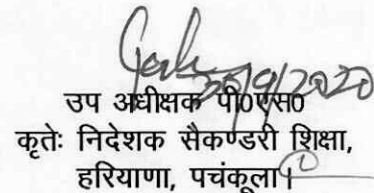 25/9/2020
उप अधीक्षक पी0एस0
कृतेः निदेशक सैकण्डरी शिक्षा,
हरियाणा, पचंकूला।